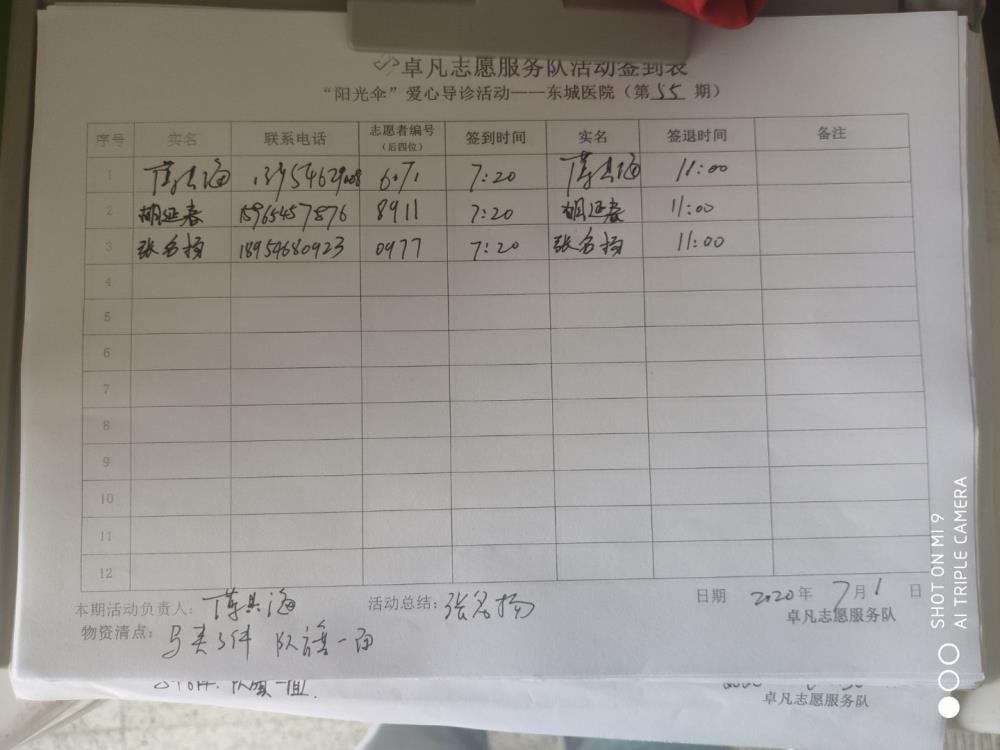 卓凡志愿服务队活动签到表
“阳光伞”爱心导诊活动——东城医院（第 55 期）
序号 实名 联系电话 志愿者编号（后四位） 签到时间 实名 签退时间 备注
1 7:20 11:00
2 胡延春 15965457876 8911 7:20 胡延春 11:00
3 张名扬 18954680923 0977 7:20 张名扬 11:00
4
5
6
7
8
9
10
11
12
本期活动负责人： 活动总结：张名扬 日期 2020年 7月1日
物资清点：马夹3件 队旗一面
卓凡志愿服务队
队旗一面.
卓凡志愿服务队
SHOT ON MI 9
AI TRIPLE CAMERA